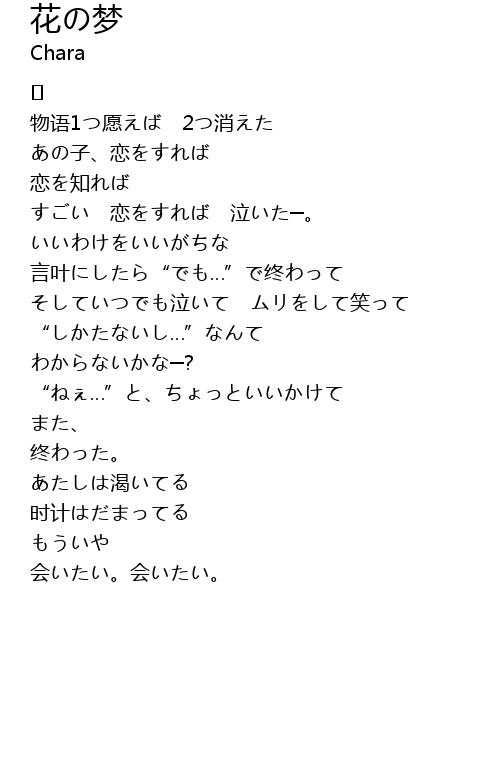 花の梦
Chara
物语1つ愿えば　2つ消えた
あの子、恋をすれば
恋を知れば
すごい　恋をすれば　泣いたー。
いいわけをいいがちな
言叶にしたら“でも…”で终わって
そしていつでも泣いて　ムリをして笑って
“しかたないし…”なんて
わからないかなー?
“ねぇ…”と、ちょっといいかけて
また、
终わった。
あたしは渇いてる
时计はだまってる
もういや
会いたい。会いたい。